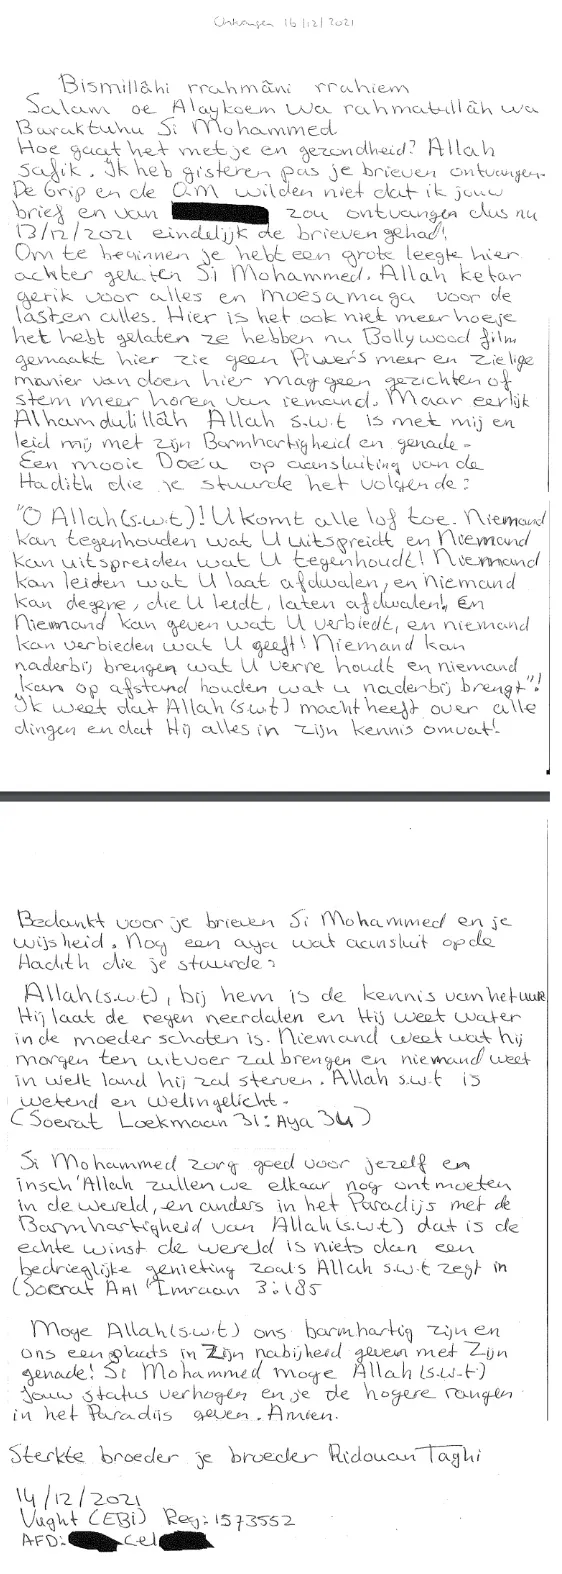 Ontvangen 16/12/2021
Bismillâhi rrahmâni rrahiem
Salam oe Alaykoem wa rahmatullâh wa
Baraktuhu Si Mohammed
Hoe gaat het met je en gezondheid? Allah
safik. Ik heb gisteren pas je brieven ontvangen.
De Grip en de O.M wilden niet dat ik jouw
brief en van zou ontvangen dus nu
13/12/2021 eindelijk de brieven gehad!
Om te beginnen je hebt een grote leegte hier
achter gelaten Si Mohammed. Allah ketar
gerik voor alles en moesamaga voor de
lasten alles. Hier is het ook niet meer hoe je
het hebt gelaten ze hebben nu Bollywood film
gemaakt hier zie geen Piwers meer en zielige
manier van doen hier mag geen gezichten of
stem meer horen van iemand. Maar eerlijk
Alhamdulillâh Allah s.w.t is met mij en
leid mij met zijn Barmhartigheid en genade.
Een mooie Doe'a op aansluiting van de
Hadith die je stuurde het volgende:
"O Allah (s.w.t)! U komt alle lof toe. Niemand
kan tegenhouden wat U uitspreidt en Niemand
kan uitspreiden wat U tegenhoudt! Niemand
kan leiden wat U laat afdwalen, en niemand
kan degene, die U leidt, laten afdwalen! En
Niemand kan geven wat U verbiedt, en niemand
kan verbieden wat U geeft! Niemand kan
naderbij brengen wat U verre houdt en niemand
kan op afstand houden wat u naderbij brengt"!
Ik weet dat Allah (s.w.t) macht heeft over alle
dingen en dat Hij alles in zijn kennis omvat!
Bedankt voor je brieven Si Mohammed en je
wijsheid. Nog een aya wat aansluit op de
Hadith die je stuurde:
Allah (s.w.t), bij hem is de kennis van het uur
Hij laat de regen neerdalen en Hij weet wat er
in de moeder schoten is. Niemand weet wat hij
morgen ten uitvoer zal brengen en niemand weet
in welk land hij zal sterven. Allah s.w.t is
wetend en welingelicht.
(Soerat Loekmaan 31: Aya 34)
Si Mohammed zorg goed voor jezelf en
insch'Allah zullen we elkaar nog ontmoeten
in de wereld, en anders in het Paradijs met de
Barmhartigheid van Allah (s.w.t) dat is de
echte winst de wereld is niets dan een
bedrieglijke genieting zoals Allah s.w.t zegt in
(Soerat Aal 'Imraan 3:185
Moge Allah (s.w.t) ons barmhartig zijn en
ons een plaats in Zijn nabijheid geven met Zijn
genade! Si Mohammed moge Allah (s.w.t)
jouw status verhogen en je de hogere rangen
in het Paradijs geven. Amien.
Sterkte broeder je broeder Ridouan Taghi
14/12/2021
Vught (EBI) Reg: 1573552
AFD: Cel